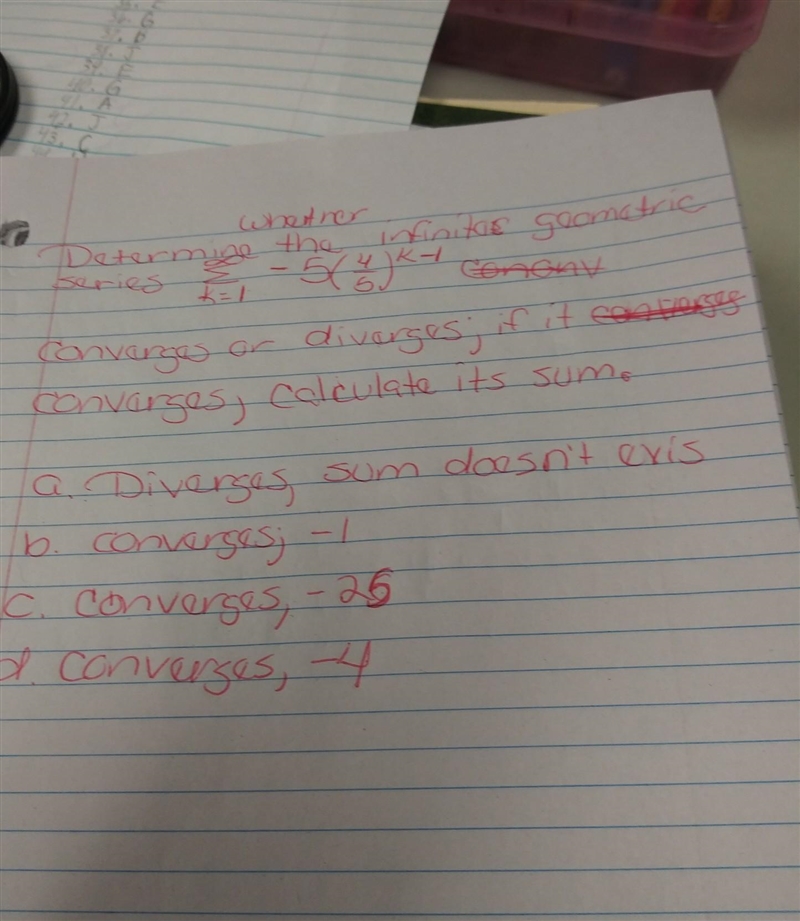 38. G
39. A
40. G
41. A
42. J
43. C
whether
Determine the infinite geometric
series ∞Σk=1 -5(4/5)^k-1 cononv
converges or diverges; if it converges
converges, calculate its sum.
a. Diverges, sum doesn't exis
b. converges; -1
c. converges, -25
d. converges, -4